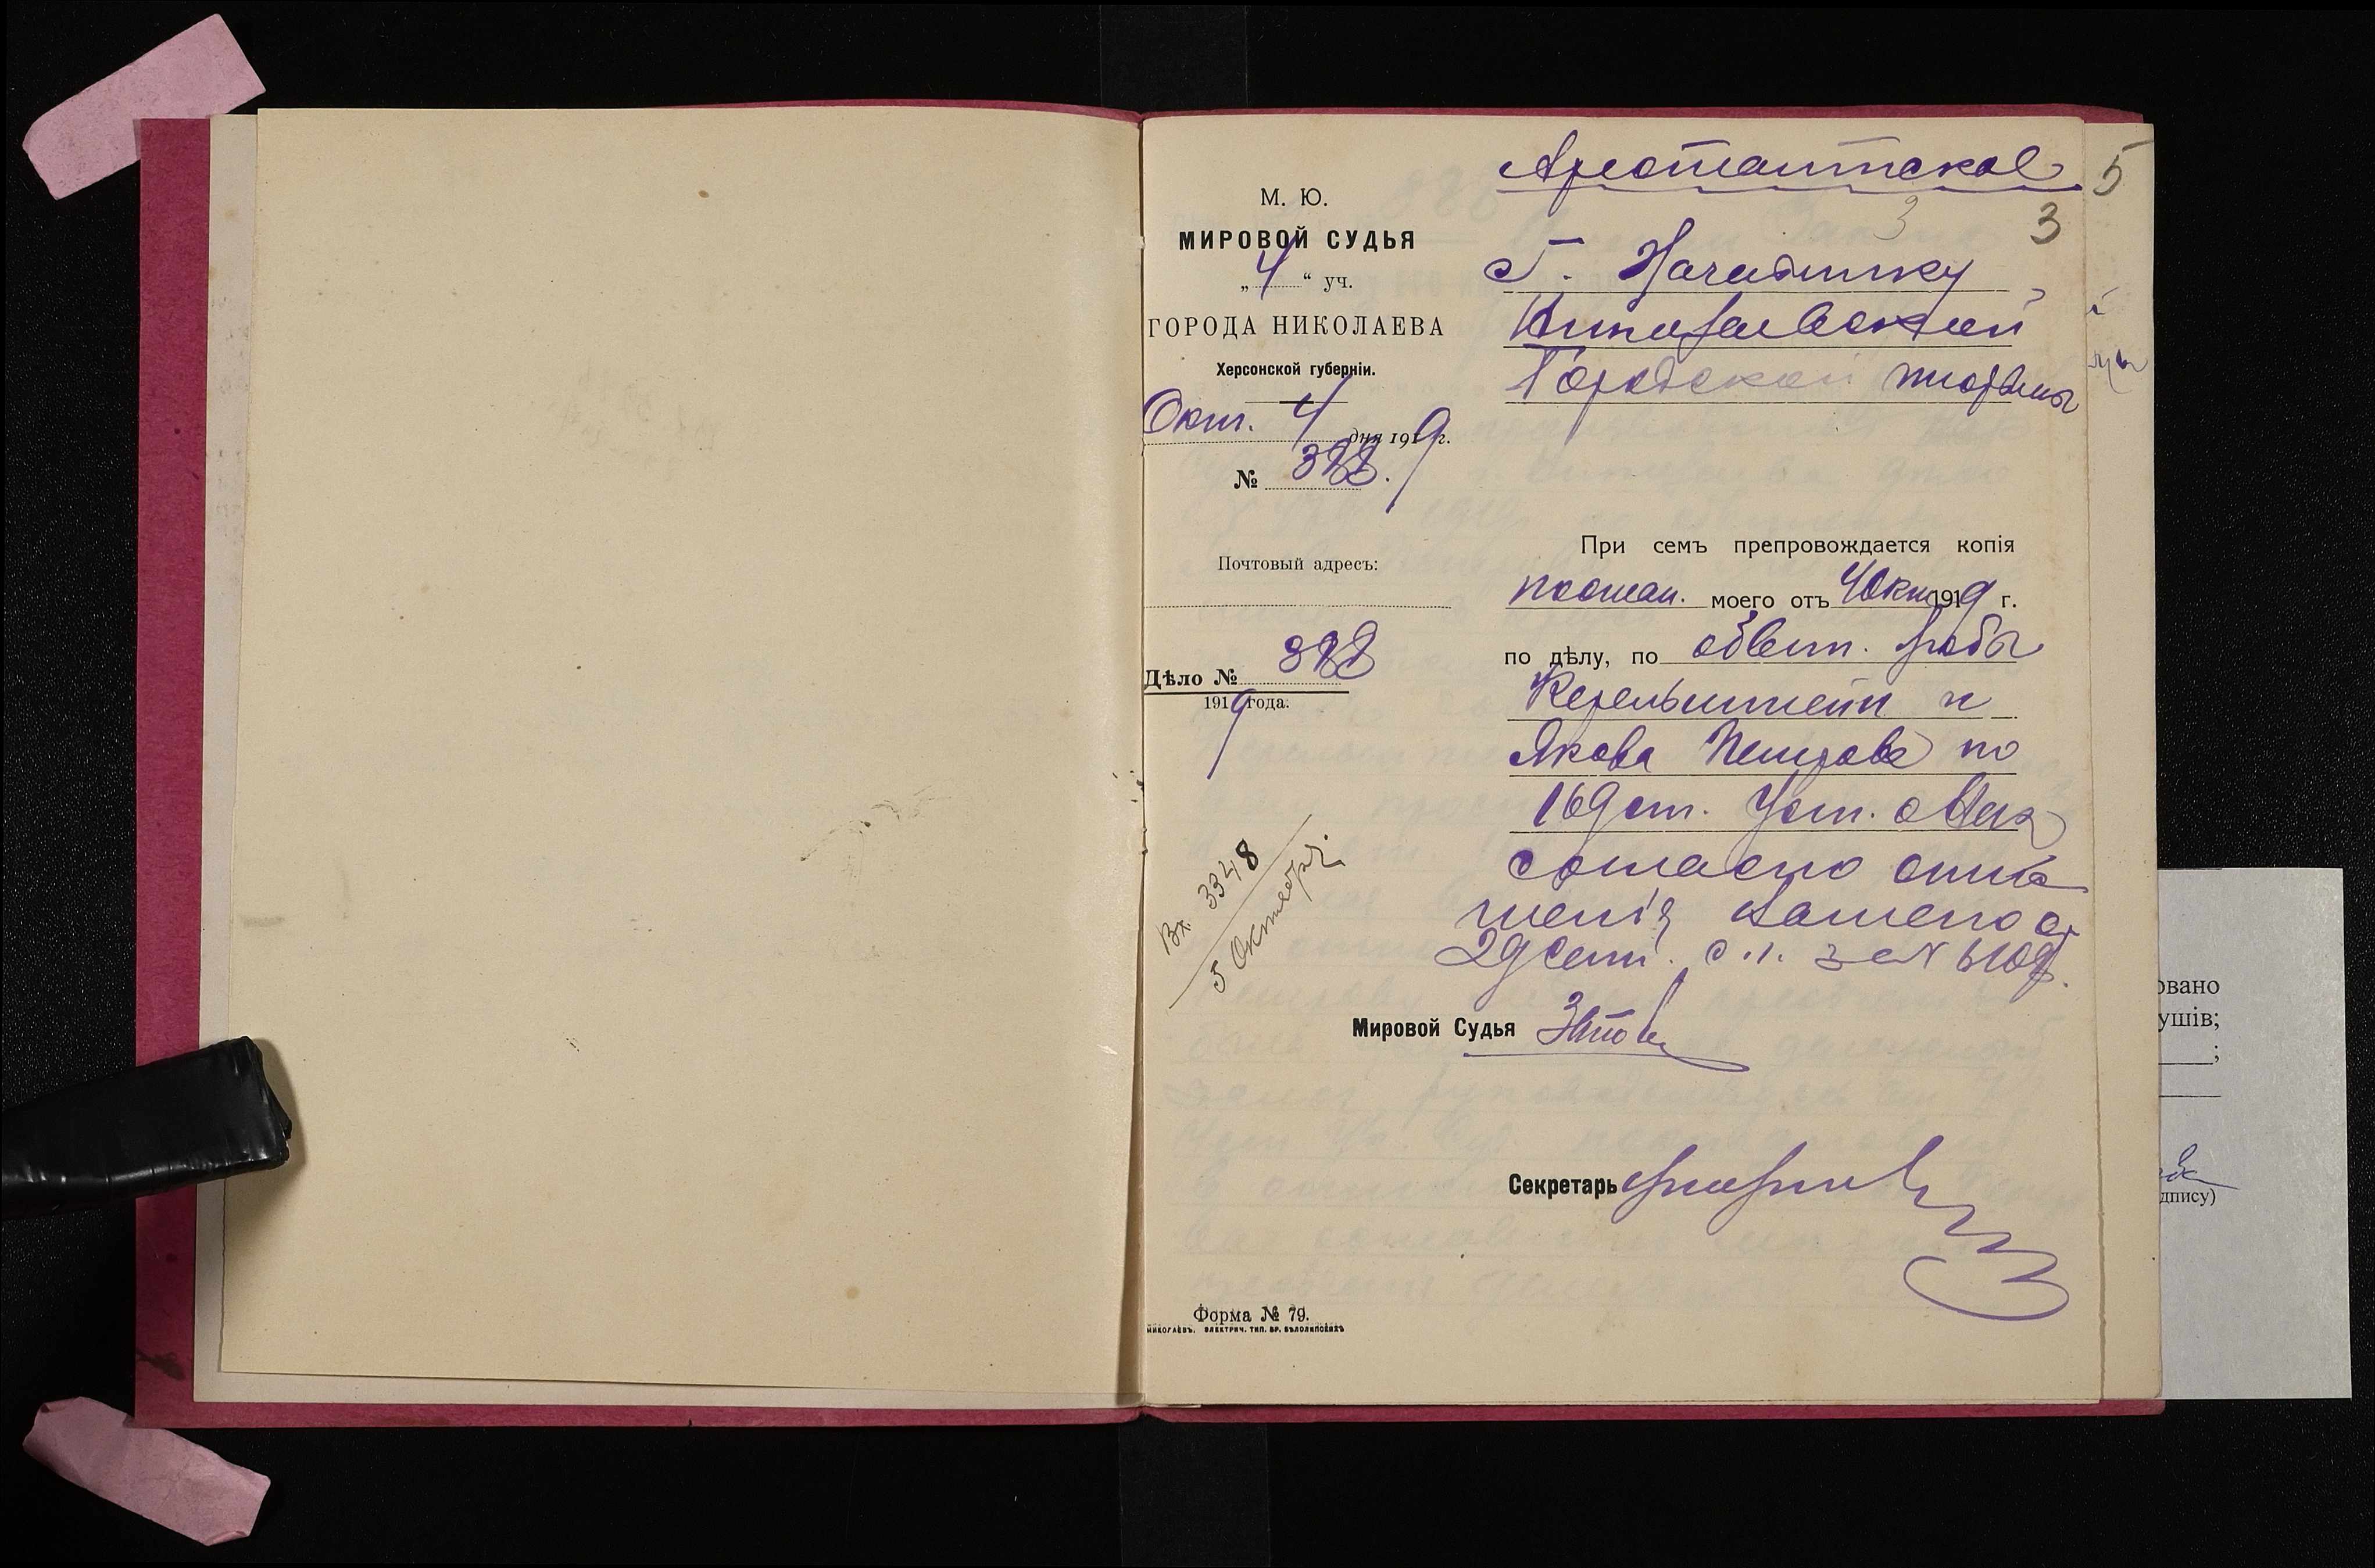 Арестантское
5
3
3
М. Ю.
МИРОВОЙ СУДЬЯ
„4“ уч.
ГОРОДА НИКОЛАЕВА
Херсонской губерніи.
Окт. 4 дня 1919 г.
№ 388.
Г. Начальнику
Николаевской
Городской тюрьмы
Почтовый адресъ:
Дѣло № 388
1919 года.
При семъ препровождается копія
постан. моего отъ 4 Окт 1919 г.
по дѣлу, по обвин.
и
Якова по
169 ст. Уст. о Нак
согласно отно
шенія Вашего от
29 Сент. с.г. за №
Вх. 3348
5 Октября
Мировой Судья
Секретарь
Форма № 79.
НИКОЛАЕВЪ. ЭЛЕКТРИЧ. ТИП. БР. БѢЛОЛИПСКИХЪ
овано
ушів;
;
дпису)